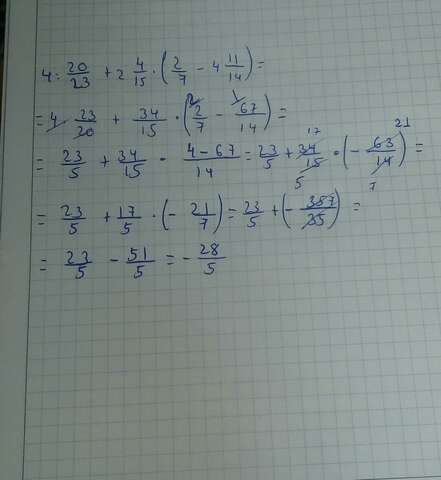 4 : 20/23 + 2 4/15 · (2/7 - 4 11/14) =
= 4 · 23/20 + 34/15 · (2/7 - 67/14) =
= 23/5 + 34/15 · 4-67/14 = 23/5 + 34/15 · (- 63/14) =
= 23/5 + 17/5 · (- 21/7) = 23/5 + (- 357/35) =
= 23/5 - 51/5 = - 28/5